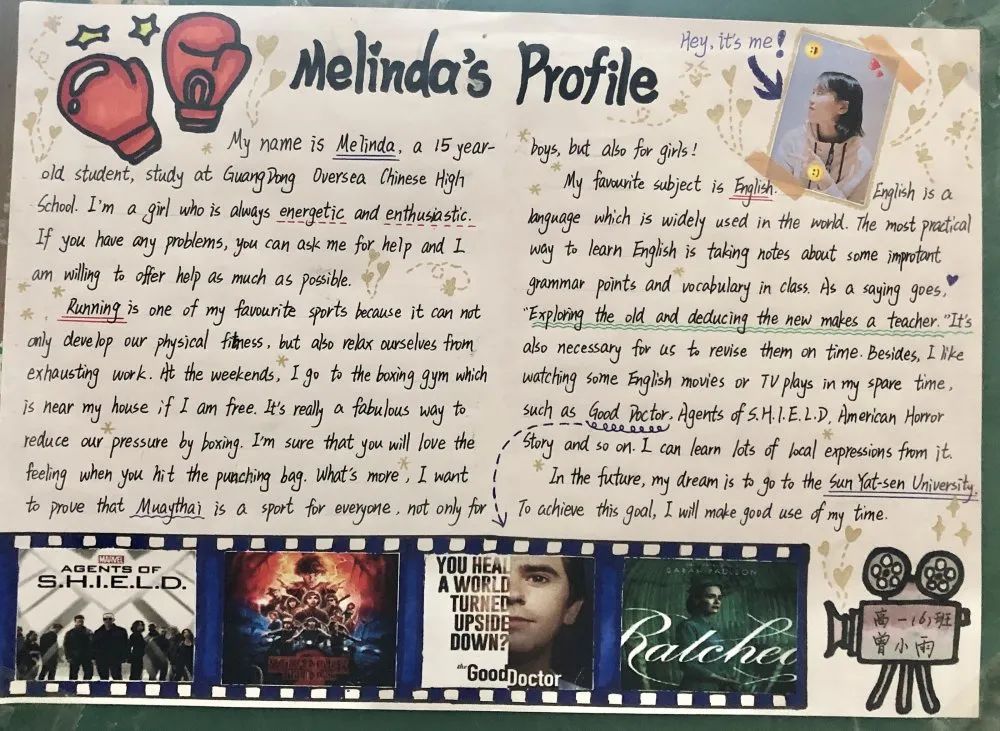 Melinda's Profile
Hey, it's me!
My name is Melinda, a 15 year-
old student, study at GuangDong Oversea Chinese High
School. I'm a girl who is always energetic and enthusiastic.
If you have any problems, you can ask me for help and I
am willing to offer help as much as possible.
Running is one of my favourite sports because it can not
only develop our physical fitness, but also relax ourselves from
exhausting work. At the weekends, I go to the boxing gym which
is near my house if I am free. It's really a fabulous way to
reduce our pressure by boxing. I'm sure that you will love the
feeling when you hit the punching bag. What's more, I want
to prove that Muaythai is a sport for everyone, not only for
boys, but also for girls!
My favourite subject is English. English is a
language which is widely used in the world. The most practical
way to learn English is taking notes about some improtant
grammar points and vocabulary in class. As a saying goes,
"Exploring the old and deducing the new makes a teacher." It's
also necessary for us to revise them on time. Besides, I like
watching some English movies or TV plays in my spare time,
such as Good Doctor. Agents of S.H.I.E.L.D, American Horror
Story and so on. I can learn lots of local expressions from it.
In the future, my dream is to go to the Sun Yat-sen University.
To achieve this goal, I will make good use of my time.
MARVEL
AGENTS OF
S.H.I.E.L.D.
YOU HEAL
A WORLD
TURNED
UPSIDE
DOWN?
the GoodDoctor
SARAH PAULSON
Ratched
高一(6)班
曾小雨